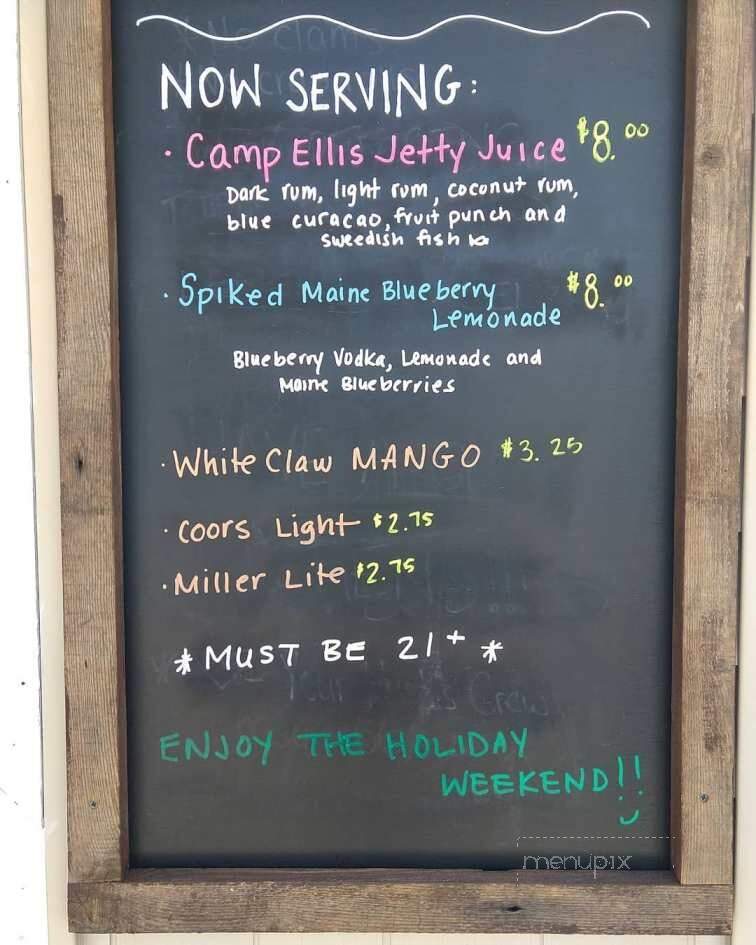 NOW SERVING:
· Camp Ellis Jetty Juice $8.00
Dark rum, light rum, coconut rum,
blue curacao, fruit punch and
sweedish fish
· Spiked Maine Blueberry $8.00
Lemonade
Blueberry Vodka, Lemonade and
Maine Blueberries
· White Claw MANGO $3.25
· Coors Light $2.75
· Miller Lite $2.75
* MUST BE 21+ *
ENJOY THE HOLIDAY
WEEKEND!!
menupix